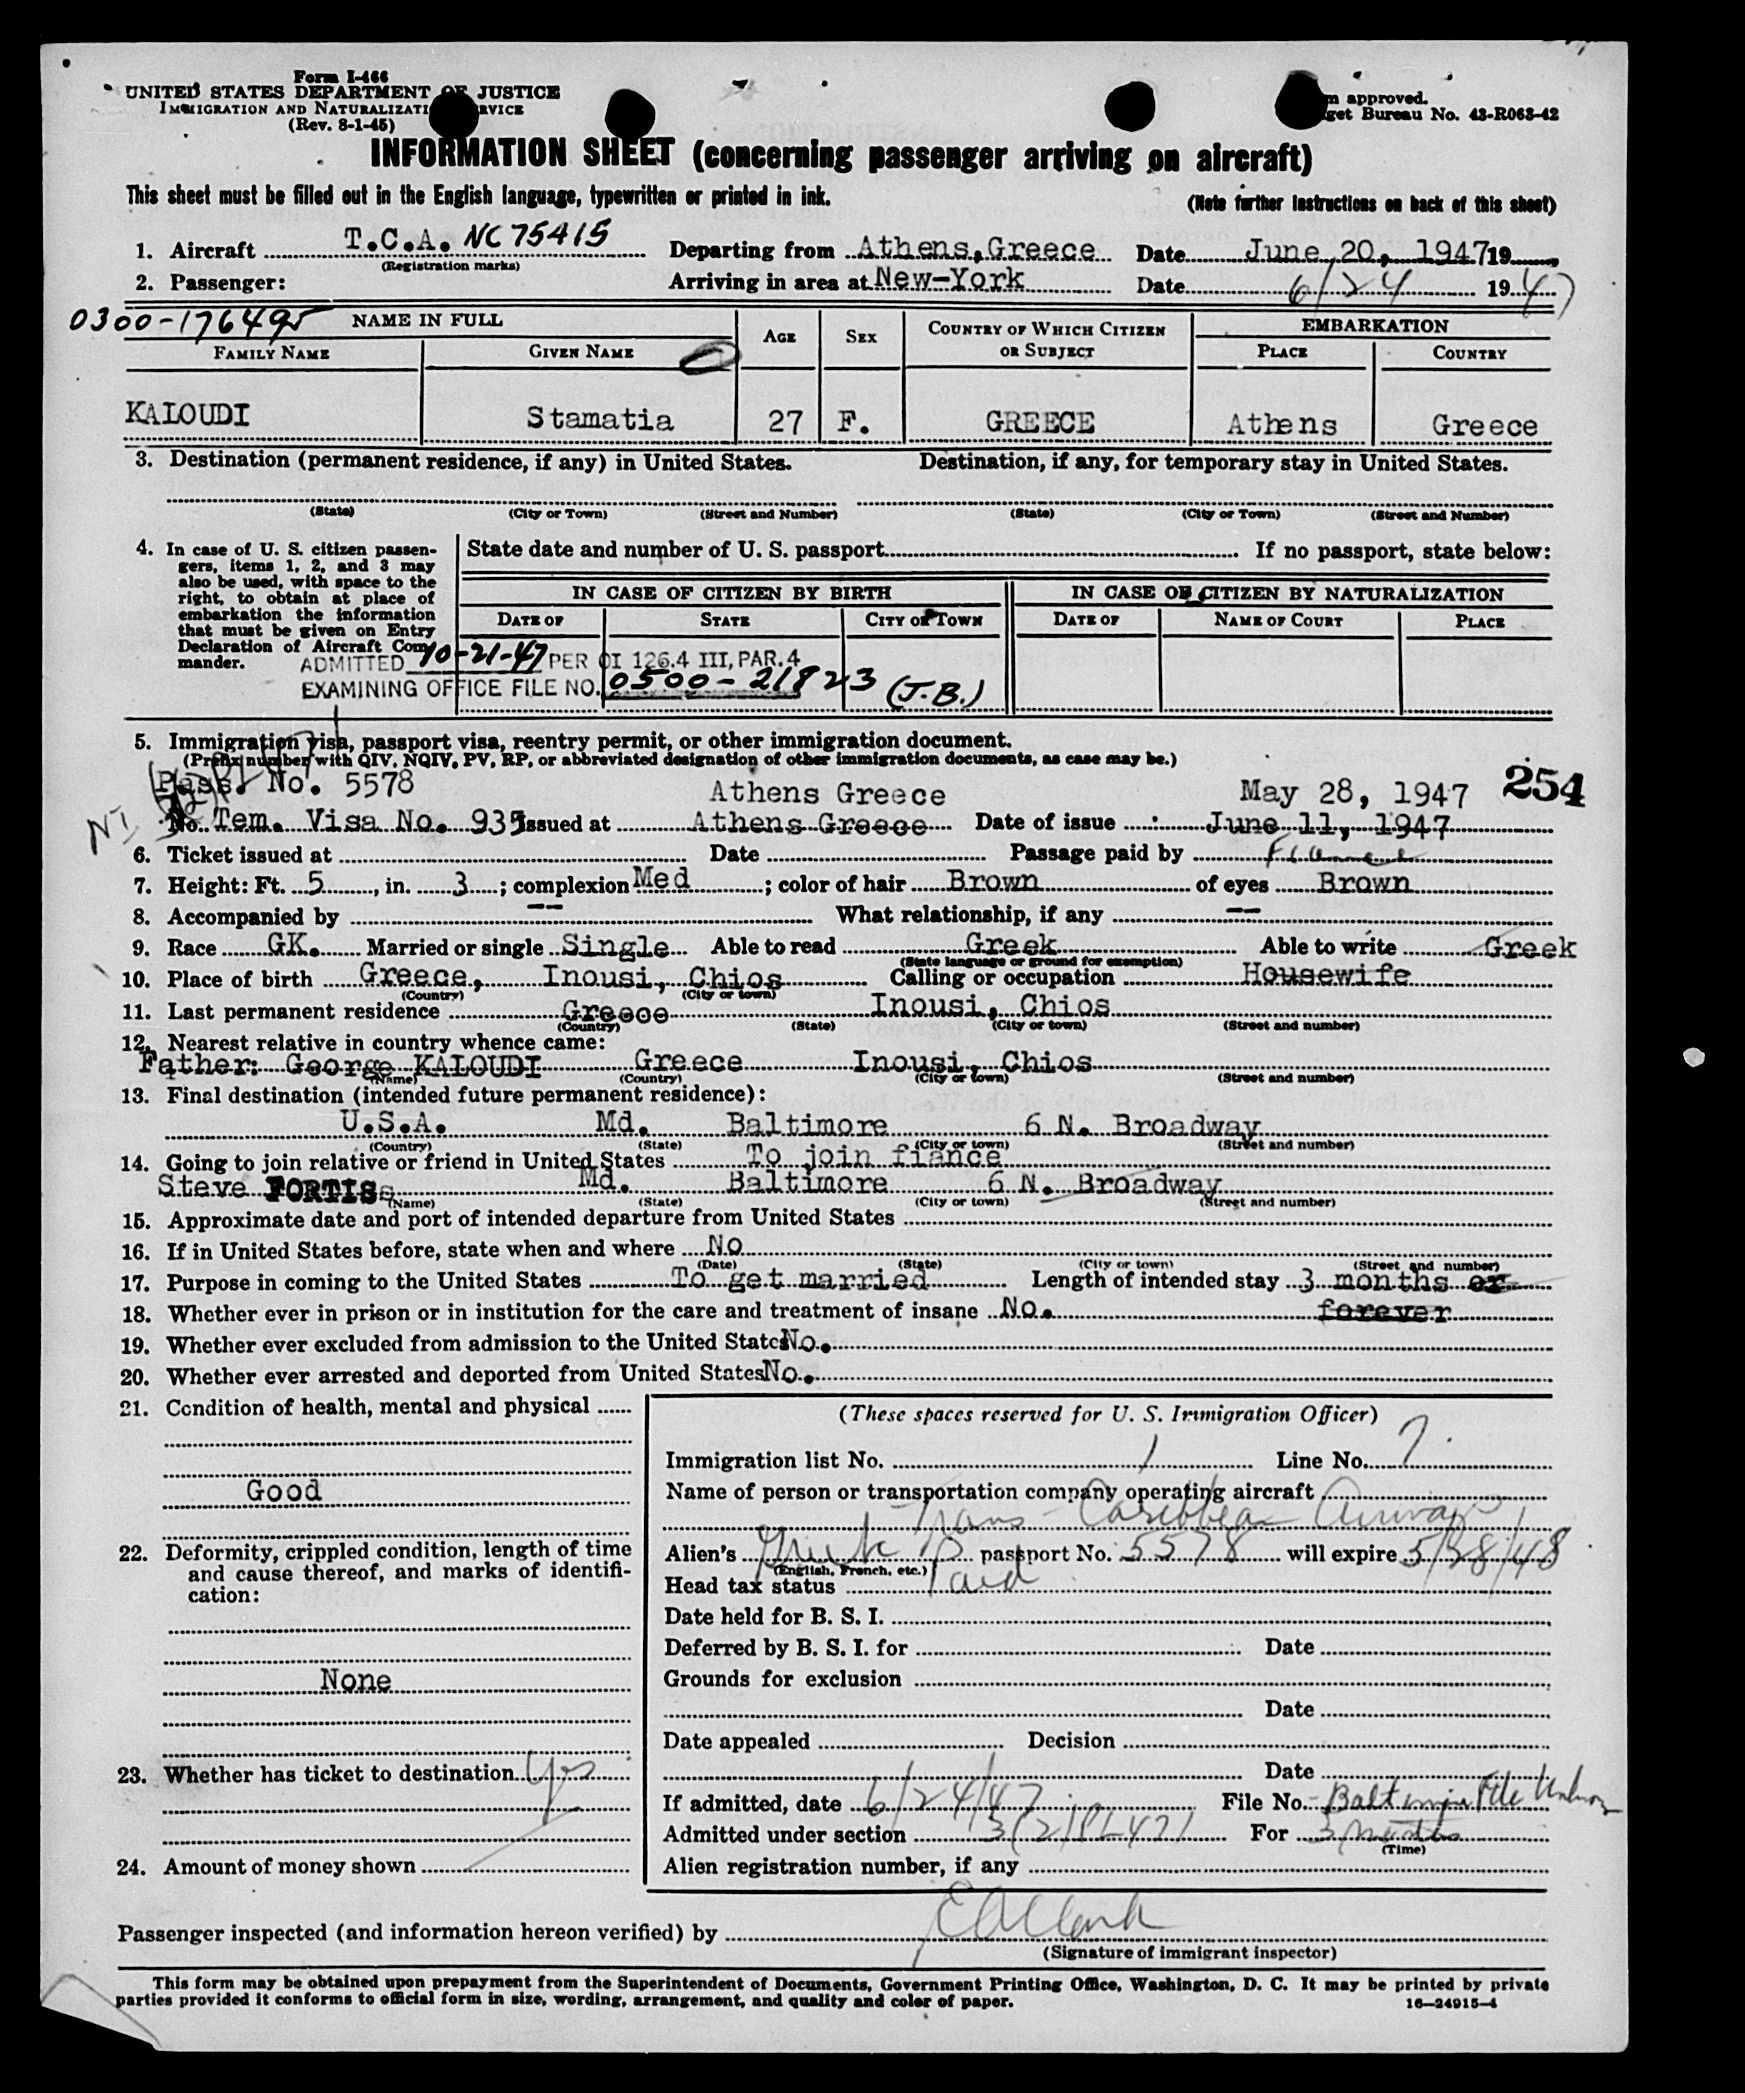 Form I-466
UNITED STATES DEPARTMENT OF JUSTICE
IMMIGRATION AND NATURALIZATI RVICE
(Rev. 8-1-45)
m approved.
get Bureau No. 43-R063-42
INFORMATION SHEET (concerning passenger arriving on aircraft)
This sheet must be filled out in the English language, typewritten or printed in ink.
(Note further instructions on back of this sheet)
1. Aircraft T.C.A. NC 75415 Departing from Athens, Greece Date June 20, 1947 19
(Registration marks)
2. Passenger: Arriving in area at New-York Date 6/24 1947
0300-176495 NAME IN FULL AGE SEX COUNTRY OF WHICH CITIZEN OR SUBJECT EMBARKATION
FAMILY NAME GIVEN NAME PLACE COUNTRY
KALOUDI Stamatia 27 F. GREECE Athens Greece
3. Destination (permanent residence, if any) in United States. Destination, if any, for temporary stay in United States.
(State) (City or Town) (Street and Number) (State) (City or Town) (Street and Number)
4. In case of U. S. citizen passen-
gers, items 1, 2, and 3 may
also be used, with space to the
right, to obtain at place of
embarkation the information
that must be given on Entry
Declaration of Aircraft Com
mander.
State date and number of U. S. passport If no passport, state below:
IN CASE OF CITIZEN BY BIRTH IN CASE OF CITIZEN BY NATURALIZATION
DATE OF STATE CITY OR TOWN DATE OF NAME OF COURT PLACE
ADMITTED 10-21-47 PER OI 126.4 III, PAR. 4
EXAMINING OFFICE FILE NO. 0500-21823 (J.B.)
5. Immigration visa, passport visa, reentry permit, or other immigration document.
(Prefix number with QIV, NQIV, PV, RP, or abbreviated designation of other immigration documents, as case may be.)
Pass. No. 5578 Athens Greece May 28, 1947 254
No. Tem. Visa No. 935 Issued at Athens Greece Date of issue June 11, 1947
6. Ticket issued at Date Passage paid by Fiance
7. Height: Ft. 5, in. 3; complexion Med; color of hair Brown of eyes Brown
8. Accompanied by -- What relationship, if any --
9. Race GK. Married or single Single Able to read Greek Able to write Greek
(State language or ground for exemption)
10. Place of birth Greece, Inousi, Chios Calling or occupation Housewife
(Country) (City or town)
11. Last permanent residence Greece Inousi, Chios
(Country) (State) (City or town) (Street and number)
12. Nearest relative in country whence came:
Father: George KALOUDI Greece Inousi, Chios
(Name) (Country) (City or town) (Street and number)
13. Final destination (intended future permanent residence):
U.S.A. Md. Baltimore 6 N. Broadway
(Country) (State) (City or town) (Street and number)
14. Going to join relative or friend in United States To join fiance
Steve FORTIS Md. Baltimore 6 N. Broadway
(Name) (State) (City or town) (Street and number)
15. Approximate date and port of intended departure from United States
16. If in United States before, state when and where No
(Date) (State) (City or town) (Street and number)
17. Purpose in coming to the United States To get married Length of intended stay 3 months or
18. Whether ever in prison or in institution for the care and treatment of insane No. forever
19. Whether ever excluded from admission to the United States No.
20. Whether ever arrested and deported from United States No.
21. Condition of health, mental and physical
Good
22. Deformity, crippled condition, length of time
and cause thereof, and marks of identifi-
cation:
None
23. Whether has ticket to destination Yes
24. Amount of money shown
(These spaces reserved for U. S. Immigration Officer)
Immigration list No. 1 Line No. 7
Name of person or transportation company operating aircraft
Trans-Caribbean Airways
Alien's Greek passport No. 5578 will expire 5/28/48
(English, French, etc.)
Head tax status Paid
Date held for B. S. I.
Deferred by B. S. I. for Date
Grounds for exclusion
Date
Date appealed Decision
Date
If admitted, date 6/24/47 File No. Baltimore File
Admitted under section 3(2) PL471 For 3 months
(Time)
Alien registration number, if any
Passenger inspected (and information hereon verified) by
(Signature of immigrant inspector)
This form may be obtained upon prepayment from the Superintendent of Documents, Government Printing Office, Washington, D. C. It may be printed by private
parties provided it conforms to official form in size, wording, arrangement, and quality and color of paper.
16—24915-4